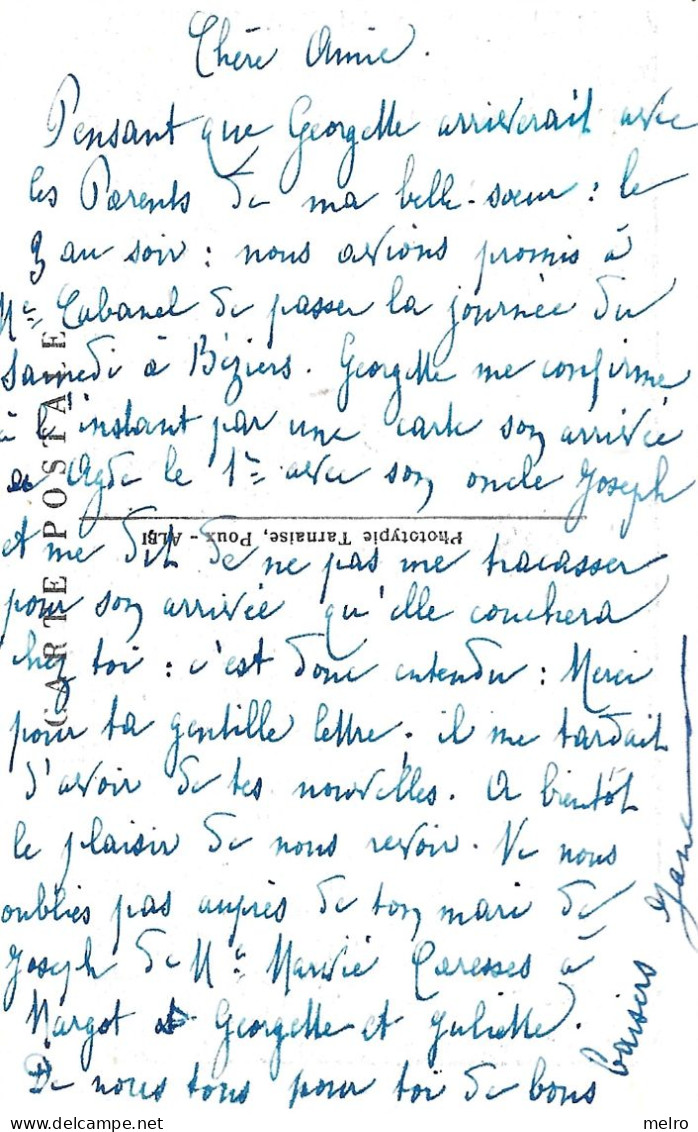 Chère Amie.
Pensant que Georgette arriverait avec
les Parents de ma belle-sœur : le
3 au soir : nous avions promis à
Me Cabanel de passer la journée du
Samedi à Béziers. Georgette me confirme
à l'instant par une carte son arrivée
Agde le 1er avec son oncle Joseph
et me dit de ne pas me tracasser
pour son arrivée qu'elle couchera
chez toi : c'est donc entendu : Merci
pour ta gentille lettre. il me tardait
d'avoir de tes nouvelles. A bientôt
le plaisir de nous revoir. Ne nous
oublies pas auprès de ton mari de
Joseph de Me Caresses à
Margot et Georgette et Juliette.
De nous tous pour toi de bons
baisers
CARTE POSTALE
Phototypie Tarnaise, Poux - ALBI
melro